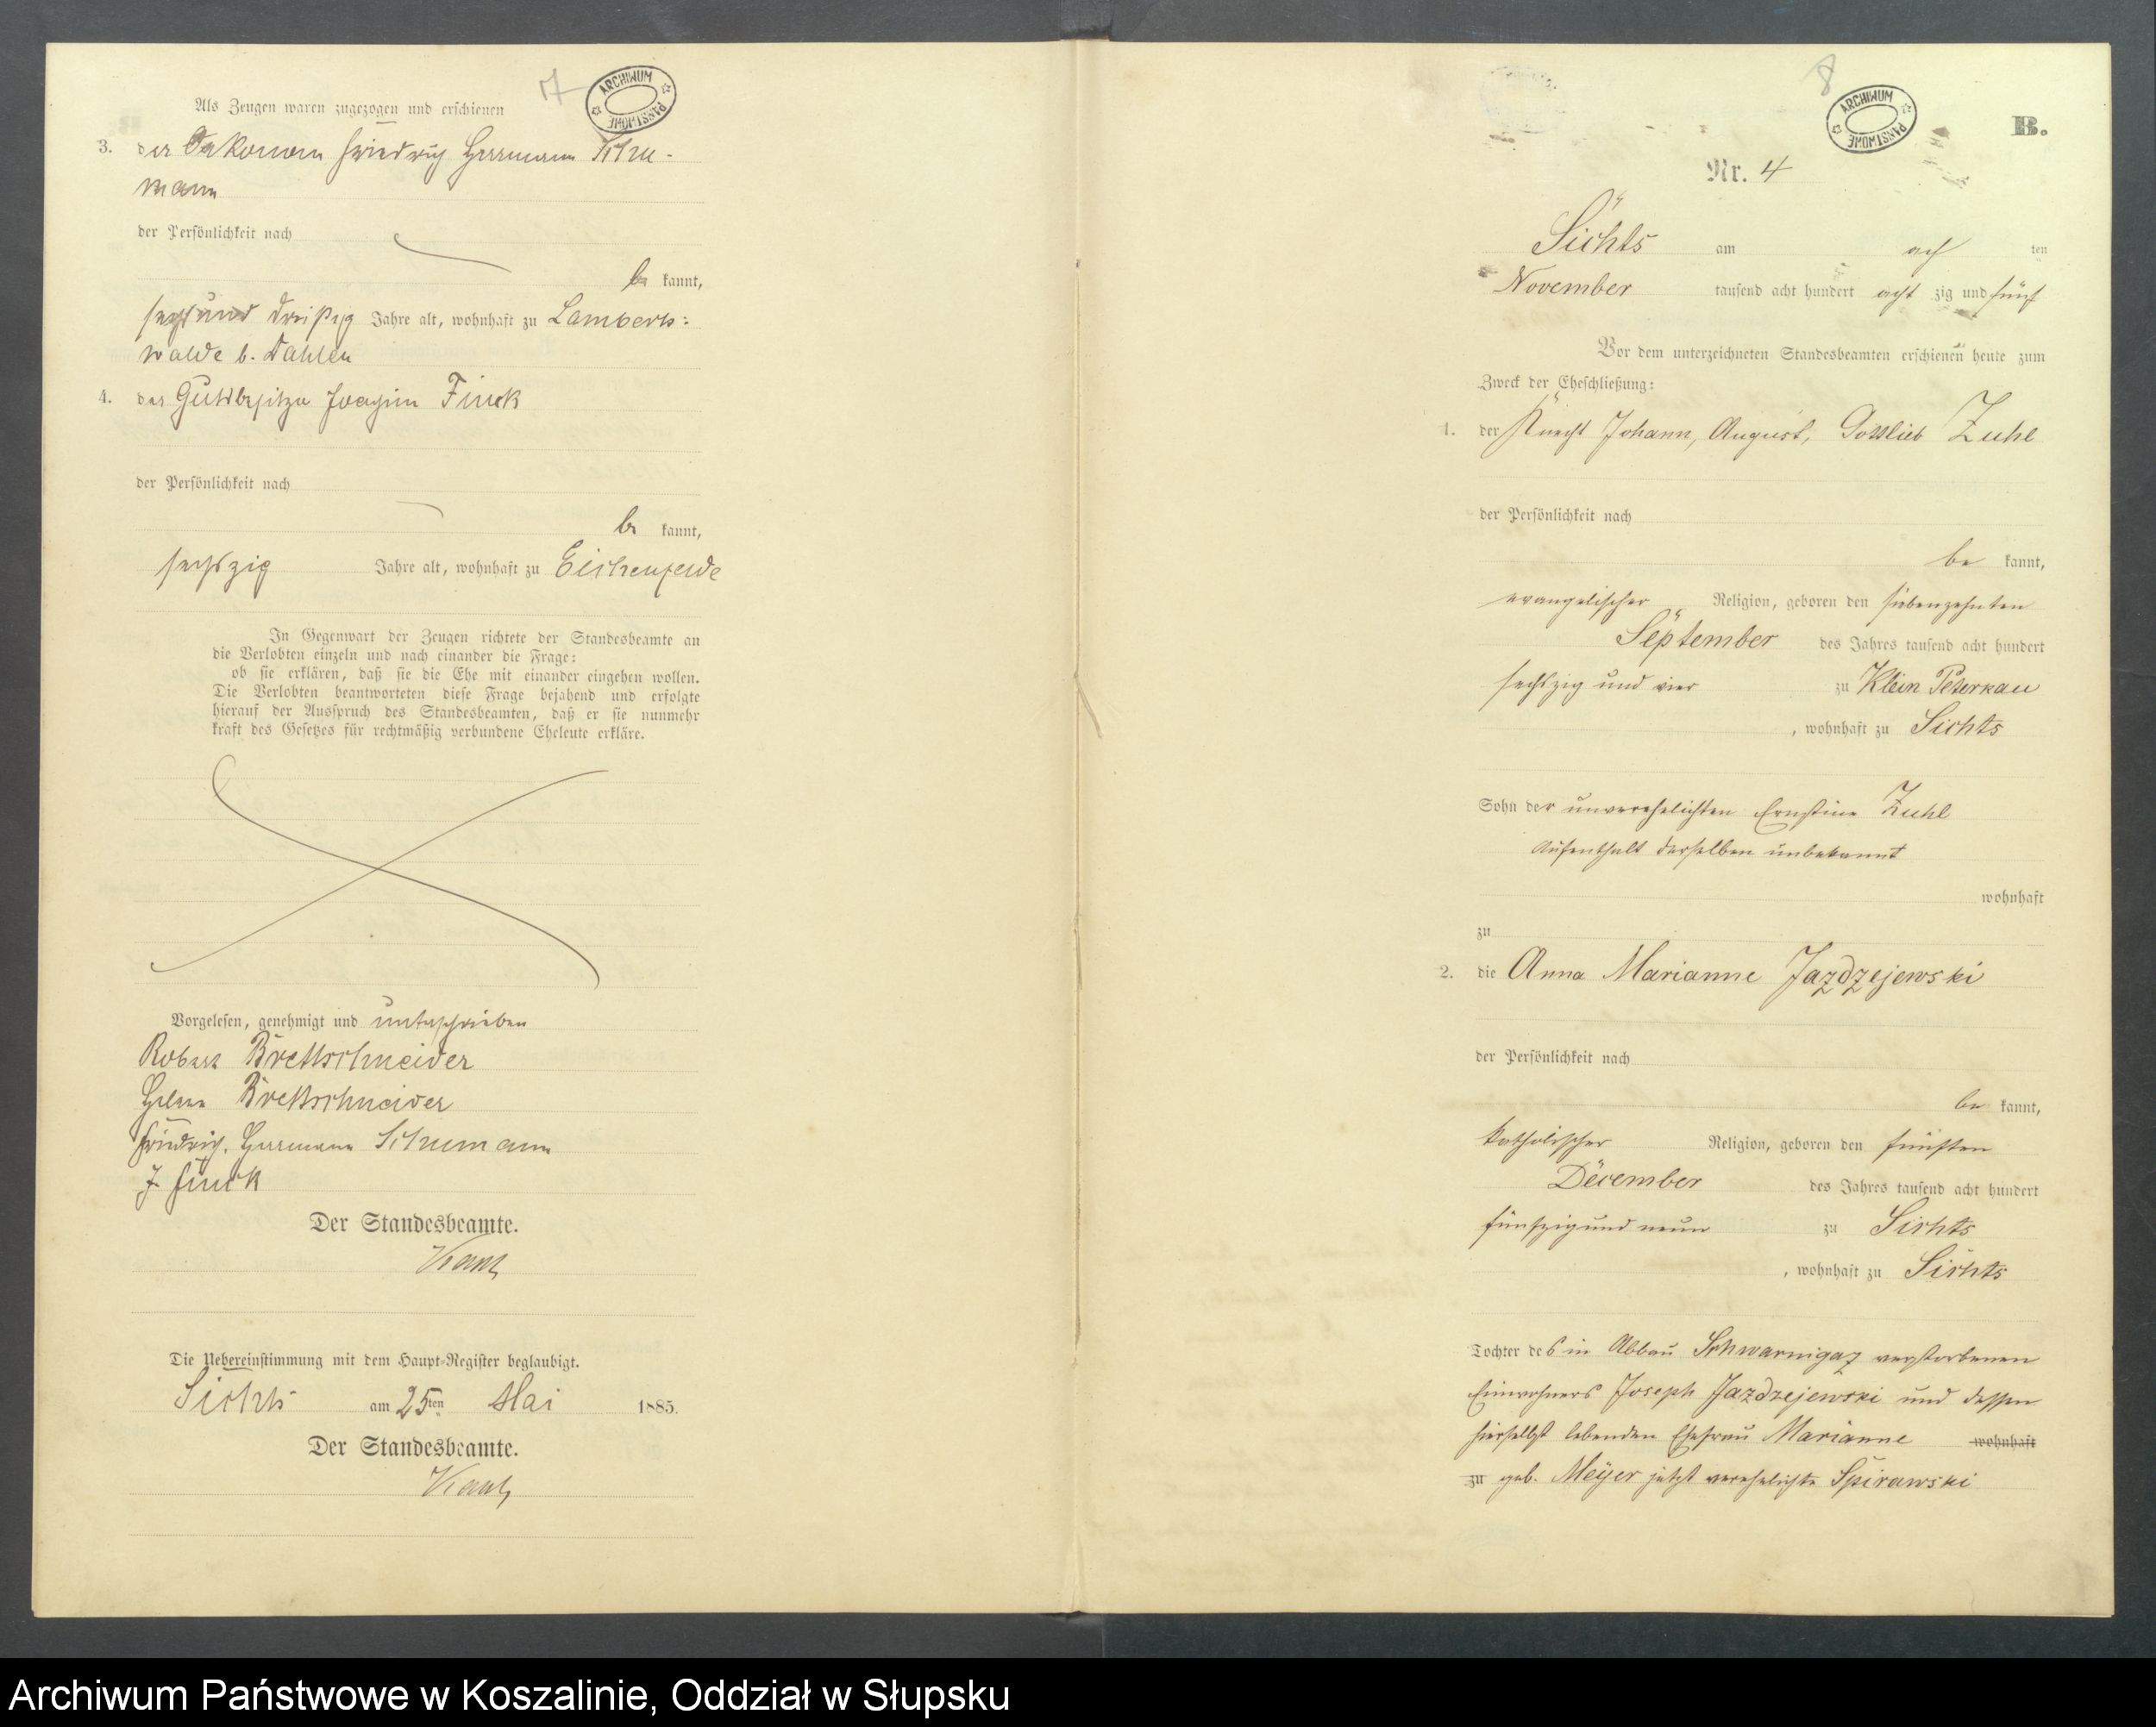 17
ARCHIWUM PAŃSTWOWE
Als Zeugen waren zugezogen und erschienen
3. der Oekonom Friedrich Herrmann Schu-
mann
der Persönlichkeit nach
be kannt,
sechs und dreißig Jahre alt, wohnhaft zu Lamberts-
walde b. Dahlen
4. der Gutsbesitzer Joachim Finck
der Persönlichkeit nach
be kannt,
sechszig Jahre alt, wohnhaft zu Eichenfelde
In Gegenwart der Zeugen richtete der Standesbeamte an
die Verlobten einzeln und nach einander die Frage:
ob sie erklären, daß sie die Ehe mit einander eingehen wollen.
Die Verlobten beantworteten diese Frage bejahend und erfolgte
hierauf der Ausspruch des Standesbeamten, daß er sie nunmehr
kraft des Gesetzes für rechtmäßig verbundene Eheleute erkläre.
Vorgelesen, genehmigt und unterschrieben
Robert Brettschneider
Helene Brettschneider
Friedrich Herrmann Schumann
J. Finck
Der Standesbeamte.
Die Uebereinstimmung mit dem Haupt-Register beglaubigt.
Sichts am 25ten Mai 1885.
Der Standesbeamte.
8
ARCHIWUM PAŃSTWOWE
B.
Nr. 4
Sichts am ach ten
November tausend acht hundert acht zig und fünf
Vor dem unterzeichneten Standesbeamten erschienen heute zum
Zweck der Eheschließung:
1. der Knecht Johann, August, Gottlieb Zuhl
der Persönlichkeit nach
be kannt,
evangelischer Religion, geboren den siebenzehnten
September des Jahres tausend acht hundert
sechszig und vier zu Klein Peterkau
, wohnhaft zu Sichts
Sohn der unverehelichten Ernstine Zuhl
Aufenthalt derselben unbekannt
wohnhaft
zu
2. die Anna Marianne Jazdzejewski
der Persönlichkeit nach
be kannt,
katholischer Religion, geboren den fünften
December des Jahres tausend acht hundert
fünfzig und neun zu Sichts
, wohnhaft zu Sichts
Tochter des in Abbau Schwarnigaz verstorbenen
Einwohners Joseph Jazdzejewski und dessen
hierselbst lebenden Ehefrau Marianne wohnhaft
zu geb. Meyer jetzt verehelichte Spirawski
Archiwum Państwowe w Koszalinie, Oddział w Słupsku